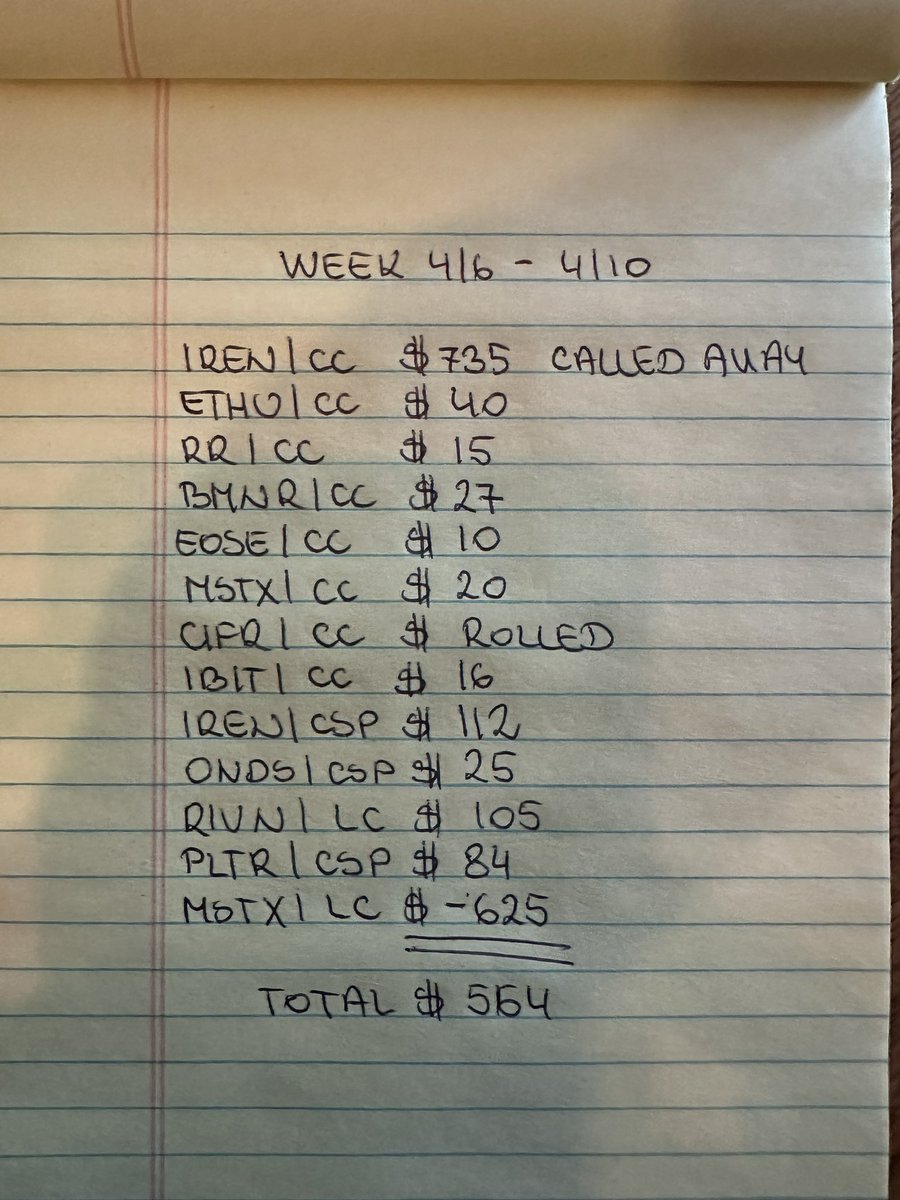 WEEK 4/6 - 4/10
IREN | CC $ 735 CALLED AWAY
ETHU | CC $ 40
RR | CC $ 15
BMNR | CC $ 27
EOSE | CC $ 10
MSTX | CC $ 20
CIFR | CC $ ROLLED
IBIT | CC $ 16
IREN | CSP $ 112
ONDS | CSP $ 25
RIVN | LC $ 105
PLTR | CSP $ 84
MSTX | LC $ -625
TOTAL $ 564